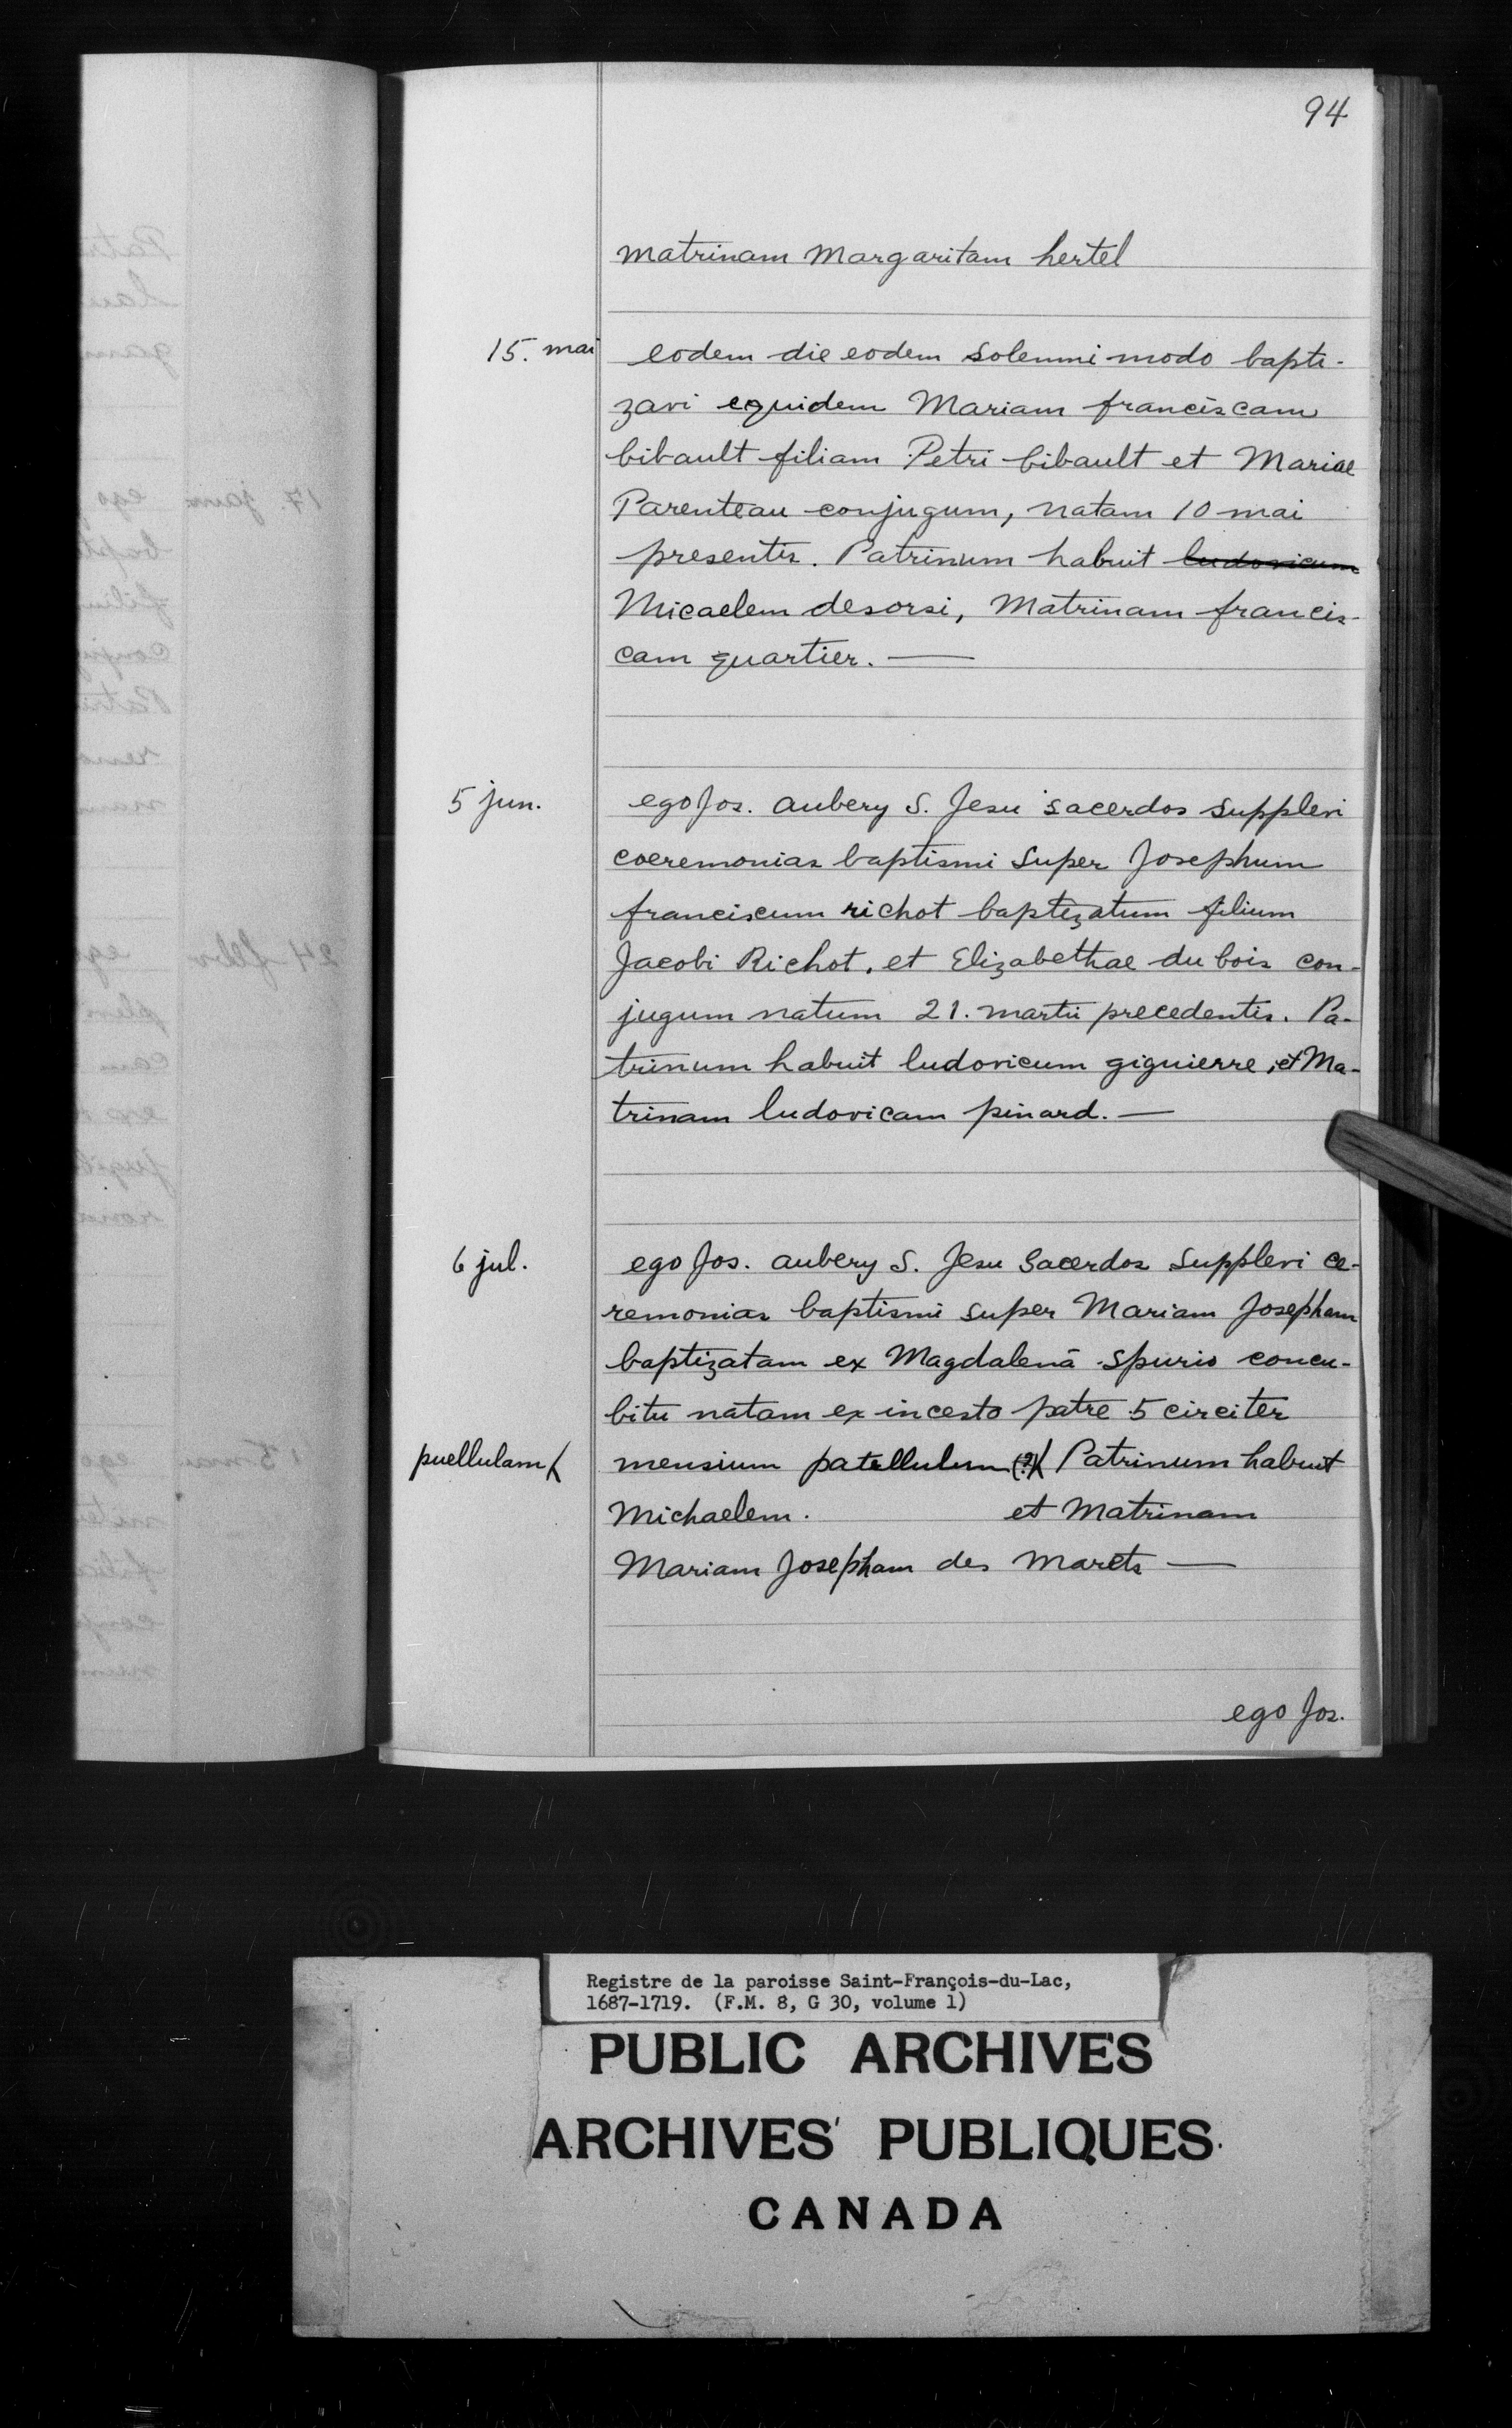 94
matrinam Margaritam hertel
15. mai eodem die eodem solemni modo bapti-
zavi equidem Mariam franciscam
bibault filiam Petri bibault et Mariae
Parenteau conjugum, natam 10 mai
presentis. Patrinum habuit ludovicum
Micaelem desorsi, Matrinam francis-
cam quartier. —
5 jun. ego Jos. aubery S. Jesu sacerdos supplevi
coeremonias baptismi super Josephum
franciscum richot baptizatum filium
Jacobi Richot. et Elizabethae du bois con-
jugum natum 21. martii precedentis. Pa-
trinum habuit ludovicum giguierre, et Ma-
trinam ludovicam pinard. —
6 jul. ego Jos. aubery S. Jesu Sacerdos supplevi ce-
remonias baptismi super Mariam Josepham
baptizatam ex Magdalenâ spurio concu-
bitu natam ex incesto patre 5 circiter
puellulam mensium patellulum (?) Patrinum habuit
Michaelem. et Matrinam
Mariam Josepham des Marets —
ego Jos.
Registre de la paroisse Saint-François-du-Lac,
1687-1719. (F.M. 8, G 30, volume 1)
PUBLIC ARCHIVES
ARCHIVES PUBLIQUES
CANADA